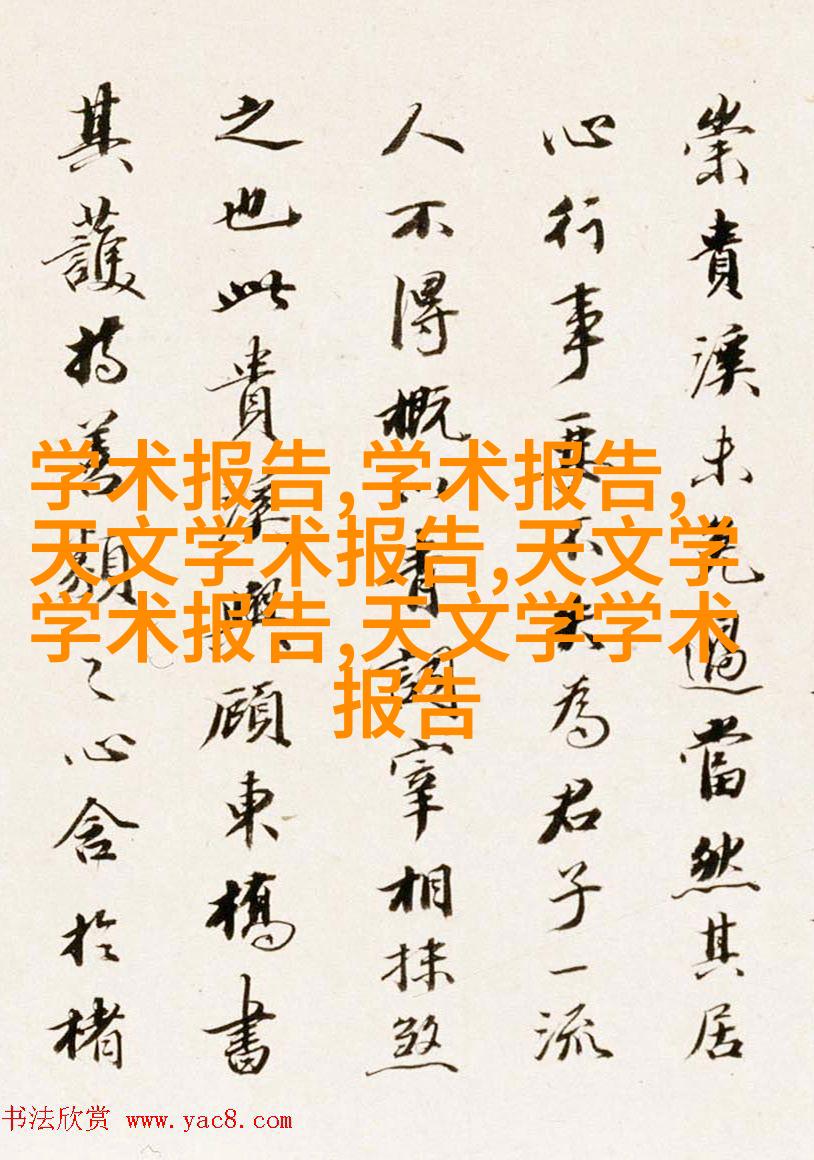 崇貴溪未免過當然其居
心行事要不失為君子一流
人不得概以青詞宰相抹煞
之也此貴溪與顧東橋書
其護持善類之心含於楮
学术报告,学术报告,
天文学术报告,天文学
学术报告,天文学学术
报告
书法欣赏 www.yac8.com